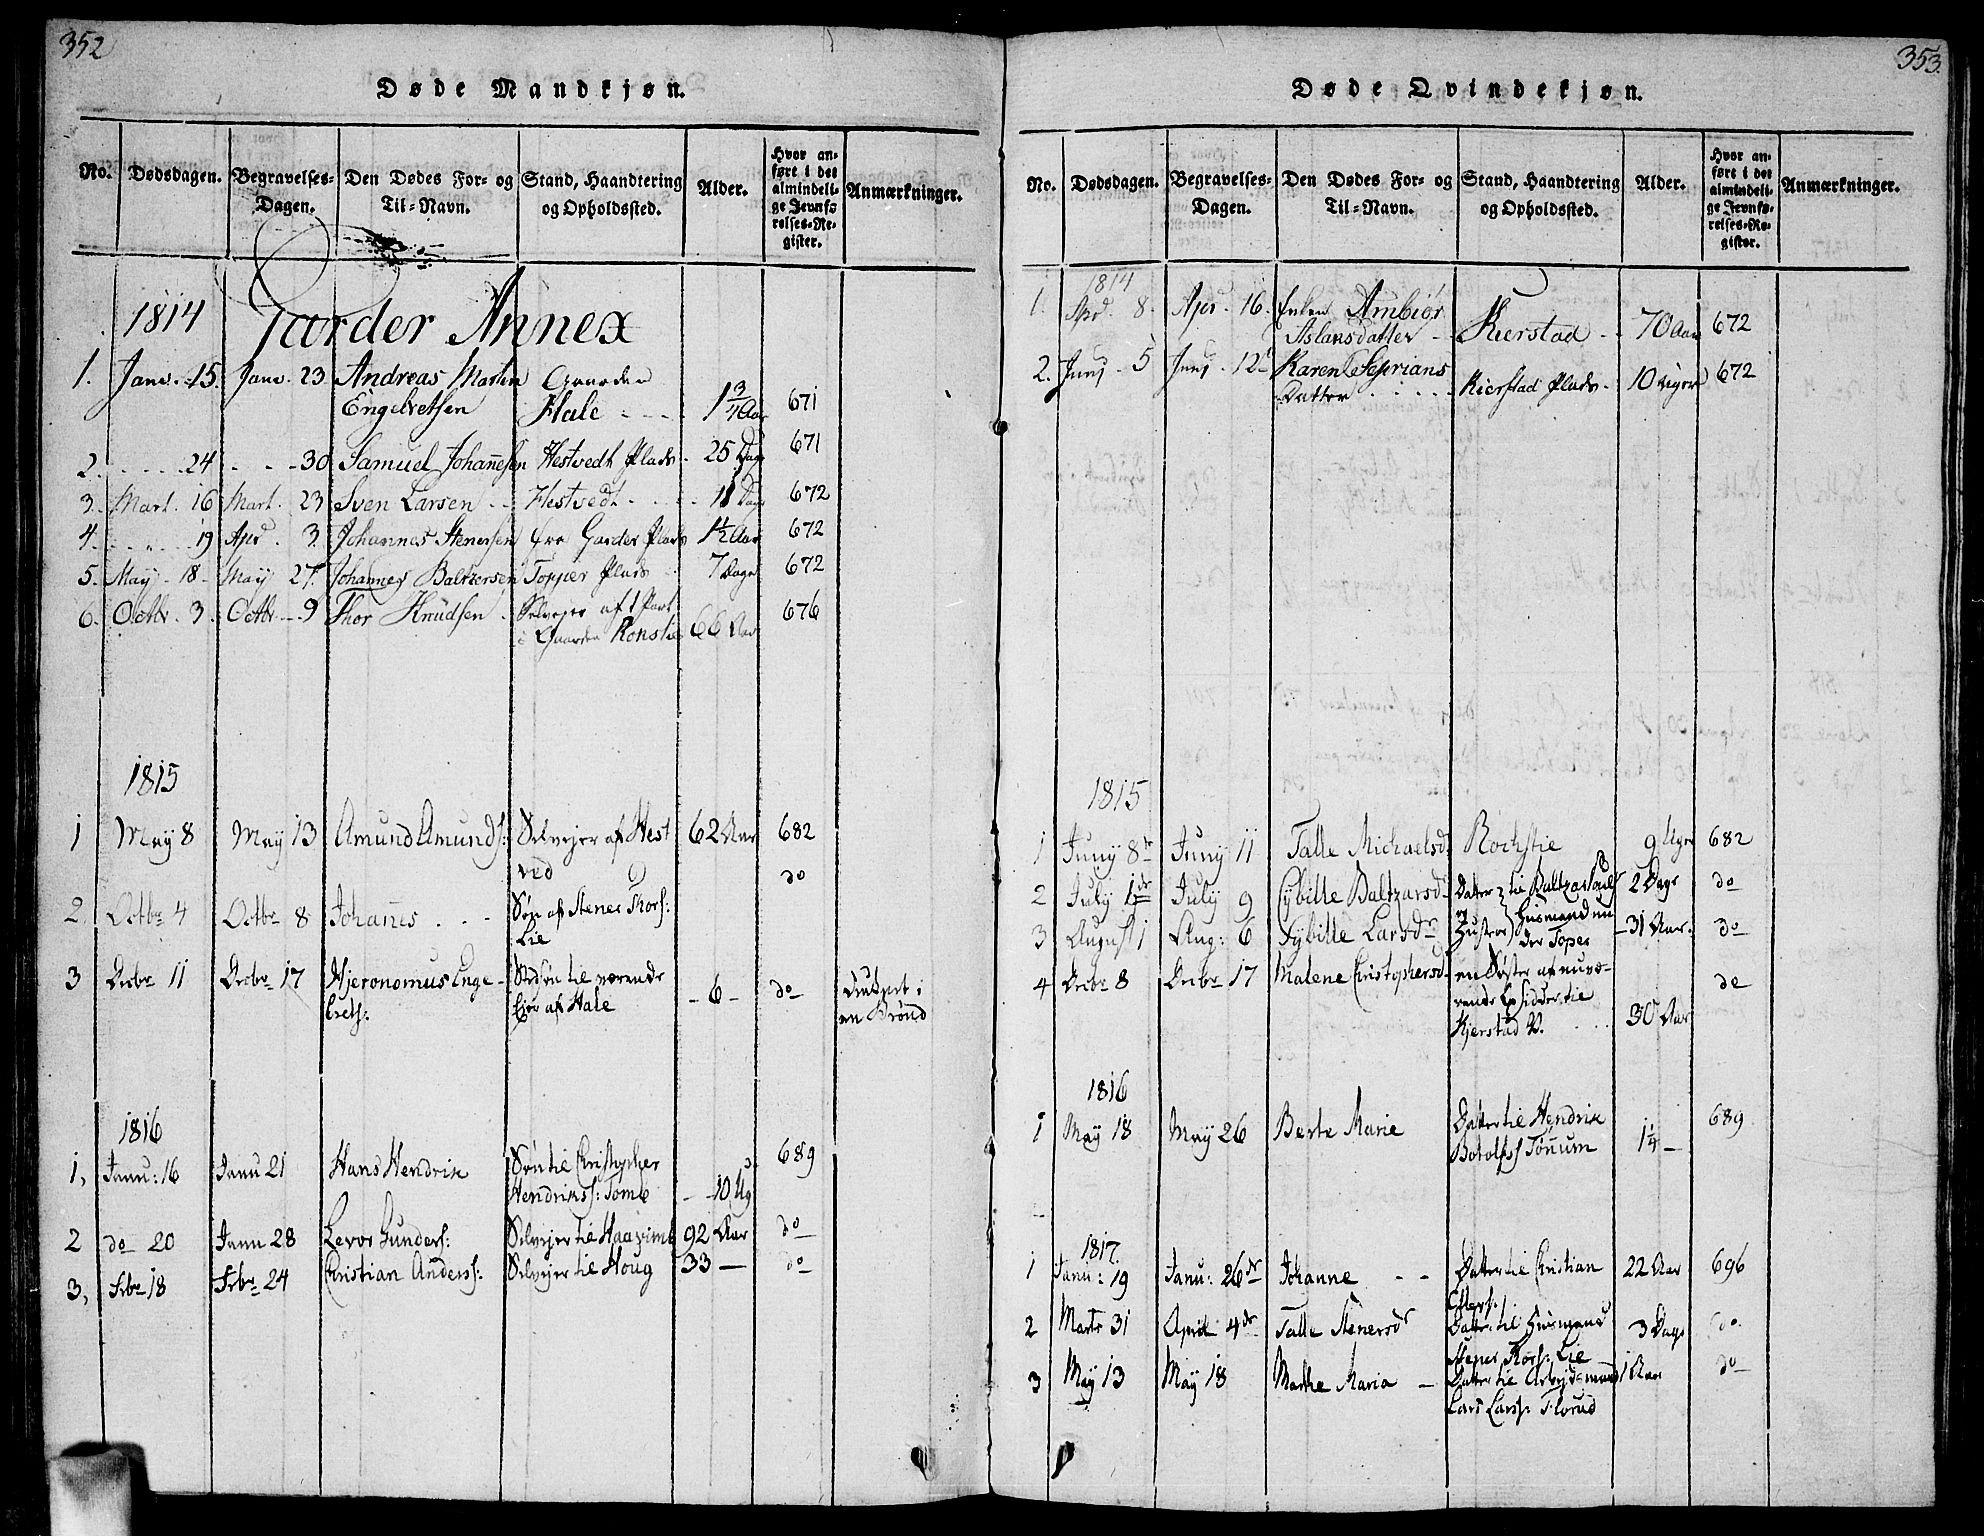 352
Døde Mandkjøn.
No. Dødsdagen. Begravelses-Dagen. Den Dødes For- og Til-Navn. Stand, Haandtering og Opholdssted. Alder. Hvor anført i det almindelige Jevnførelses-Register. Anmærkninger.
1814 Garder Annex
1. Janv. 15. Janv. 23 Andreas Martin Gaarden
Engelretsen Hale 671
2. 24 30 Samuel Johanesen Hestvedt Plads 25 Dage 671
3. Mart. 16 Mart. 23 Sven Larsen Hestvedt 11 Dage 672
4. 19 Apr. 3. Johannes Stenersen fra Garder Plads 1½ Aar 672
5. May 18 May 27. Johannes Baltzersen Topper Plads 7 Dage 672
6. Octbr. 3. Octbr. 9 Thor Knudsen Selvejer af 1 Part 676
i Gaarden Ronstie 66 Aar
1815
1 May 8 May 13 Amund Amunds: Selvejer af Hest 62 Aar 682
ved do
2. Octbr 4 Octbr 8 Johanes Søn af Stener Thors:
Lie
3 Decbr 11 Decbr 17 Hjeronomus Enge- Stedsøn til værende - 6 - do Druknet i
brets: Ejer af Hale en Brønd
1816
1, Janu: 16 Janu 21 Hans Hendrik Søn til Christopher 689
Hendrikss: Tomb 10 Ug
2 do 20 Janu 28 Levor Gunders: Selvejer til 92 Aar do
3, Febr 18 Febr 24 Christian Anderss: Selvejer til Houg 33 — do
353.
Døde Qvindekjøn.
No. Dødsdagen. Begravelses-Dagen. Den Dødes For- og Til-Navn. Stand, Haandtering og Opholdssted. Alder. Hvor anført i det almindelige Jevnførelses-Register. Anmærkninger.
1814
1. Apr. 8. Apr. 16. Enken Ambiør
Aslansdatter Kierstad 70 Aar 672
2. Junj 5 Junj 12 Karen Seprians
Datter Kierstad Plads 10 Uger 672
1815
1 Juny 8 Juny 11 Talle Michaelsd. Rochstie 9 Uger 682
2 July 1 July 9 Sybille Baltzarsd. Datter til Baltzar 2 Dage do
3 August 1 Aug: 6 Sybille Larsdr og Hustroe Husmand un
der Toper 31 Aar. do
4 Decbr 8 Decbr 17 Malene Christophersd. en Søster af nuvæ-
rende Opsidder til do
Kjerstad V. 30 Aar
1816
1 May 18 May 26 Berte Marie Datter til Hendrik 689
Botolfss Tønum 1¼ —
1817.
1 Janu: 19 Janu: 26 Johanne Datter til Christian 22 Aar 696
2 Marts 31 April 4 Talle Stenersdr Datter til Husmand 3 Dage do
Stener Thors: Lie
3 May 13 May 18 Marthe Maria Datter til Arbejdsmand 1 Aar do
Lars Larss: Florud